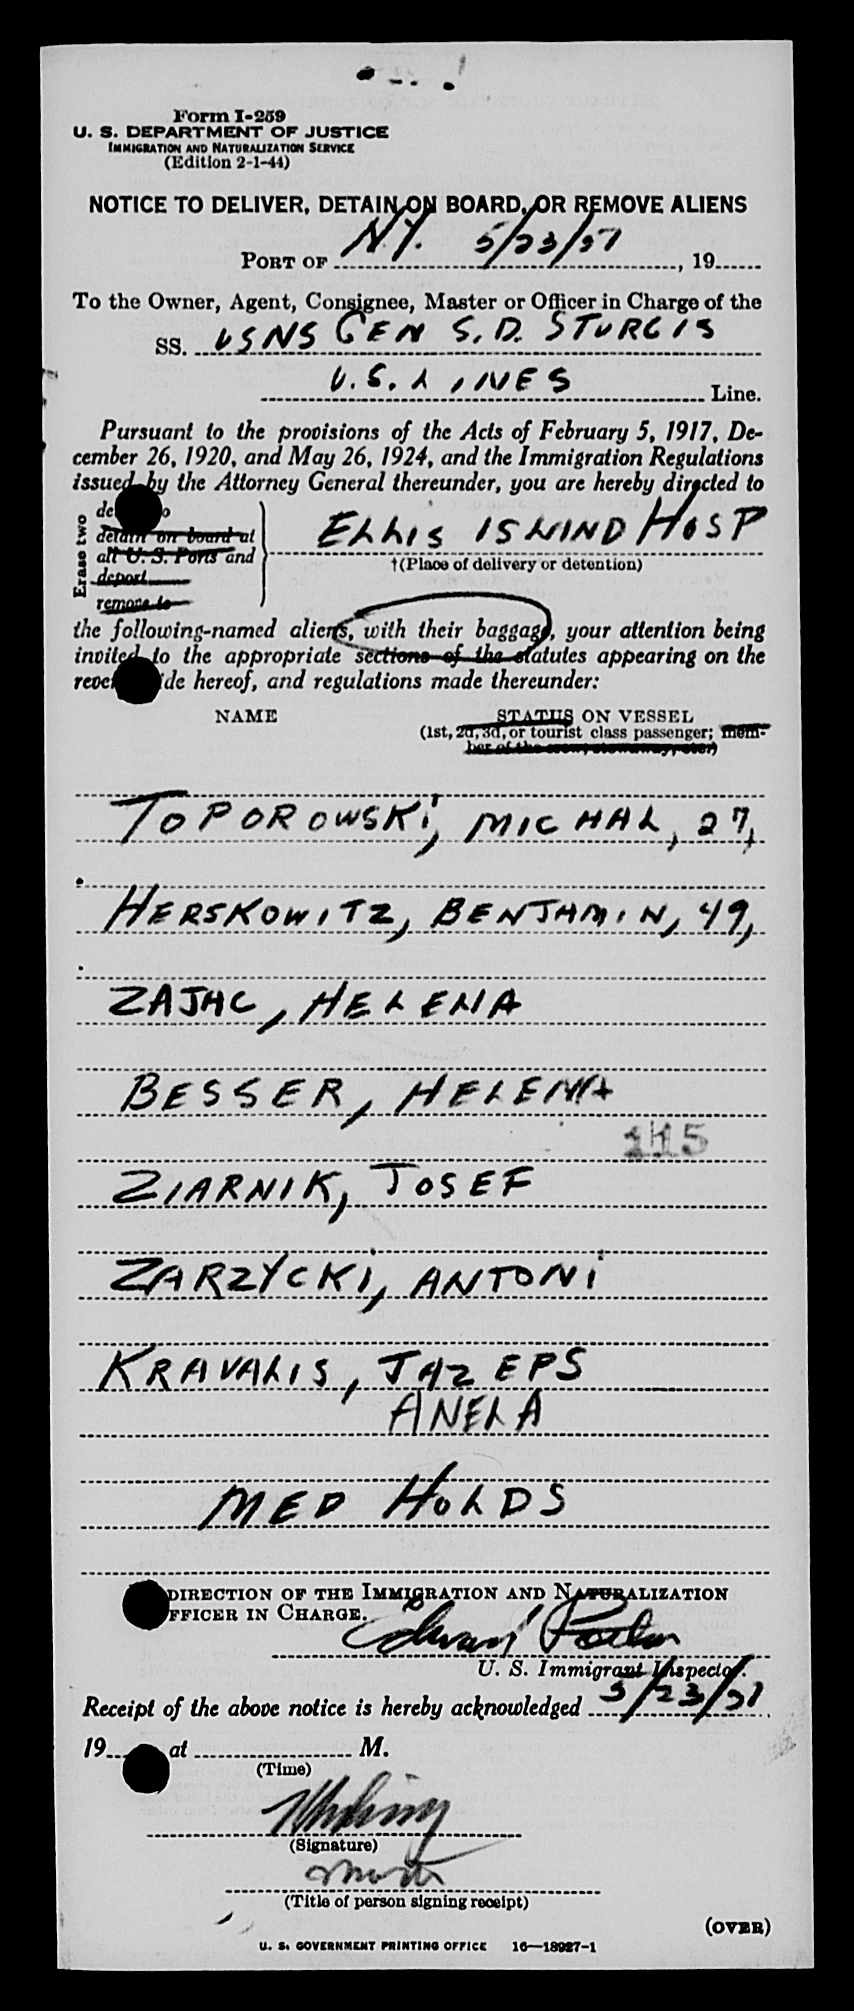 Form I-259
U. S. DEPARTMENT OF JUSTICE
IMMIGRATION AND NATURALIZATION SERVICE
(Edition 2-1-44)
NOTICE TO DELIVER, DETAIN ON BOARD, OR REMOVE ALIENS
PORT OF N.Y. 5/23/51, 19
To the Owner, Agent, Consignee, Master or Officer in Charge of the
SS. USNS GEN S.D. STURGIS
U.S. LINES Line.
Pursuant to the provisions of the Acts of February 5, 1917, De-
cember 26, 1920, and May 26, 1924, and the Immigration Regulations
issued by the Attorney General thereunder, you are hereby directed to
Erase two
detain on board at
all U. S. Ports and
deport
remove to
ELLIS ISLAND HOSP
†(Place of delivery or detention)
the following-named aliens, with their baggage, your attention being
invited to the appropriate sections of the statutes appearing on the
hereof, and regulations made thereunder:
NAME STATUS ON VESSEL
(1st, 2d, 3d, or tourist class passenger; mem-
ber of the crew, stowaway, etc.)
TOPOROWSKI, MICHAL, 27,
HERSKOWITZ, BENJAMIN, 49,
ZAJAC, HELENA
BESSER, HELENA
115
ZIARNIK, JOSEF
ZARZYCKI, ANTONI
KRAVALIS, JAZEPS
ANELA
MED HOLDS
DIRECTION OF THE IMMIGRATION AND NATURALIZATION
OFFICER IN CHARGE.
Edward
U. S. Immigrant Inspector.
Receipt of the above notice is hereby acknowledged 5/23/51,
19 at M.
(Time)
(Signature)
(Title of person signing receipt)
(OVER)
U. S. GOVERNMENT PRINTING OFFICE 16—18927-1